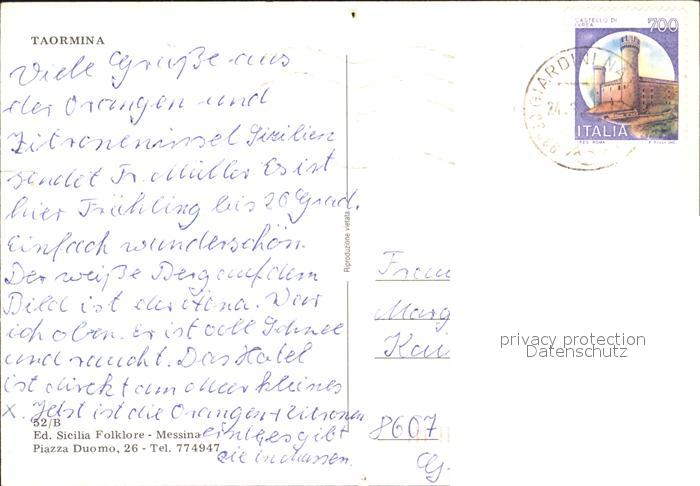 TAORMINA
Viele Grüße aus
der Orangen und
Zitroneninsel Sizilien
sendet Fr. Müller Es ist
hier Frühling bis 20 Grad.
Einfach wunderschön.
Der weiße Berg auf dem
Bild ist der Ätna. War
ich oben. Er ist voll Schnee
und raucht. Das Hotel
ist direkt am Meer kleines
x. Jetzt ist die Orangen + Zitronen
es gibt
sie in Massen.
52/B
Ed. Sicilia Folklore - Messina
Piazza Duomo, 26 - Tel. 774947
Riproduzione vietata
CASTELLO DI
IVREA
700
ITALIA
GIARDINI NA
24.
Frau
Marg
Kai
8607
privacy protection
Datenschutz